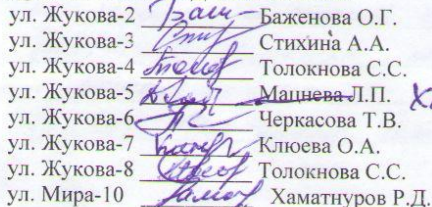 ул. Жукова-2 Баженова О.Г.
ул. Жукова-3 Стихина А.А.
ул. Жукова-4 Толокнова С.С.
ул. Жукова-5 Мацнева Л.П.
ул. Жукова-6 Черкасова Т.В.
ул. Жукова-7 Клюева О.А.
ул. Жукова-8 Толокнова С.С.
ул. Мира-10 Хаматнуров Р.Д.